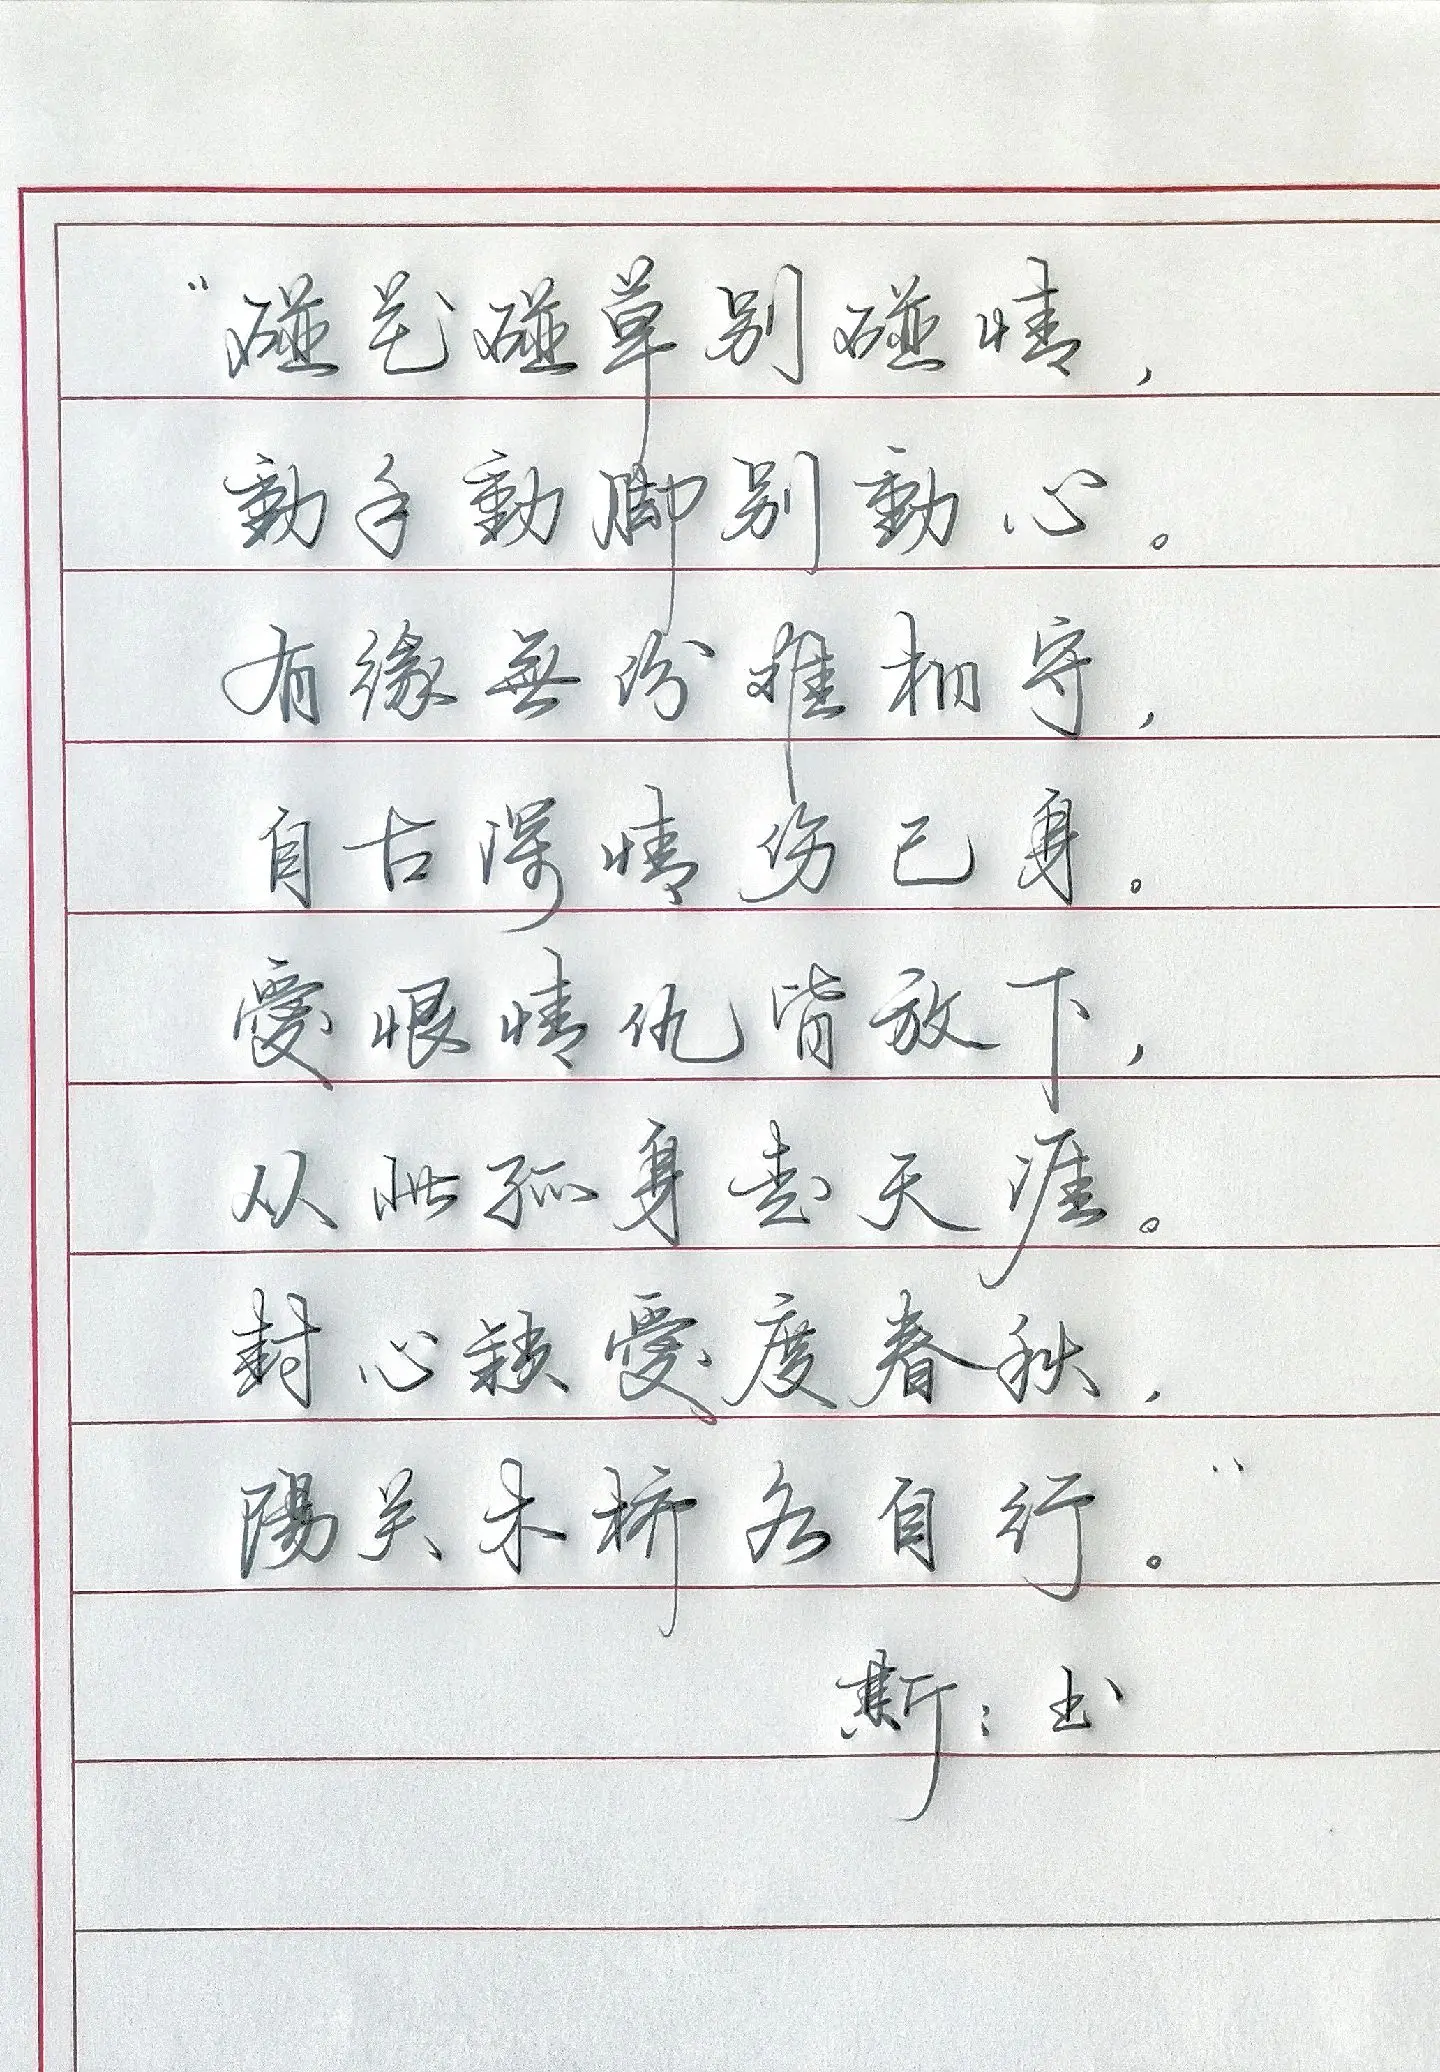 “碰花碰草别碰情，
動手動脚别動心。
有缘無份难相守，
自古深情伤己身。
愛恨情仇皆放下，
从此孤身走天涯。
封心鎖愛度春秋，
陽关木桥各自行。”
斯：书